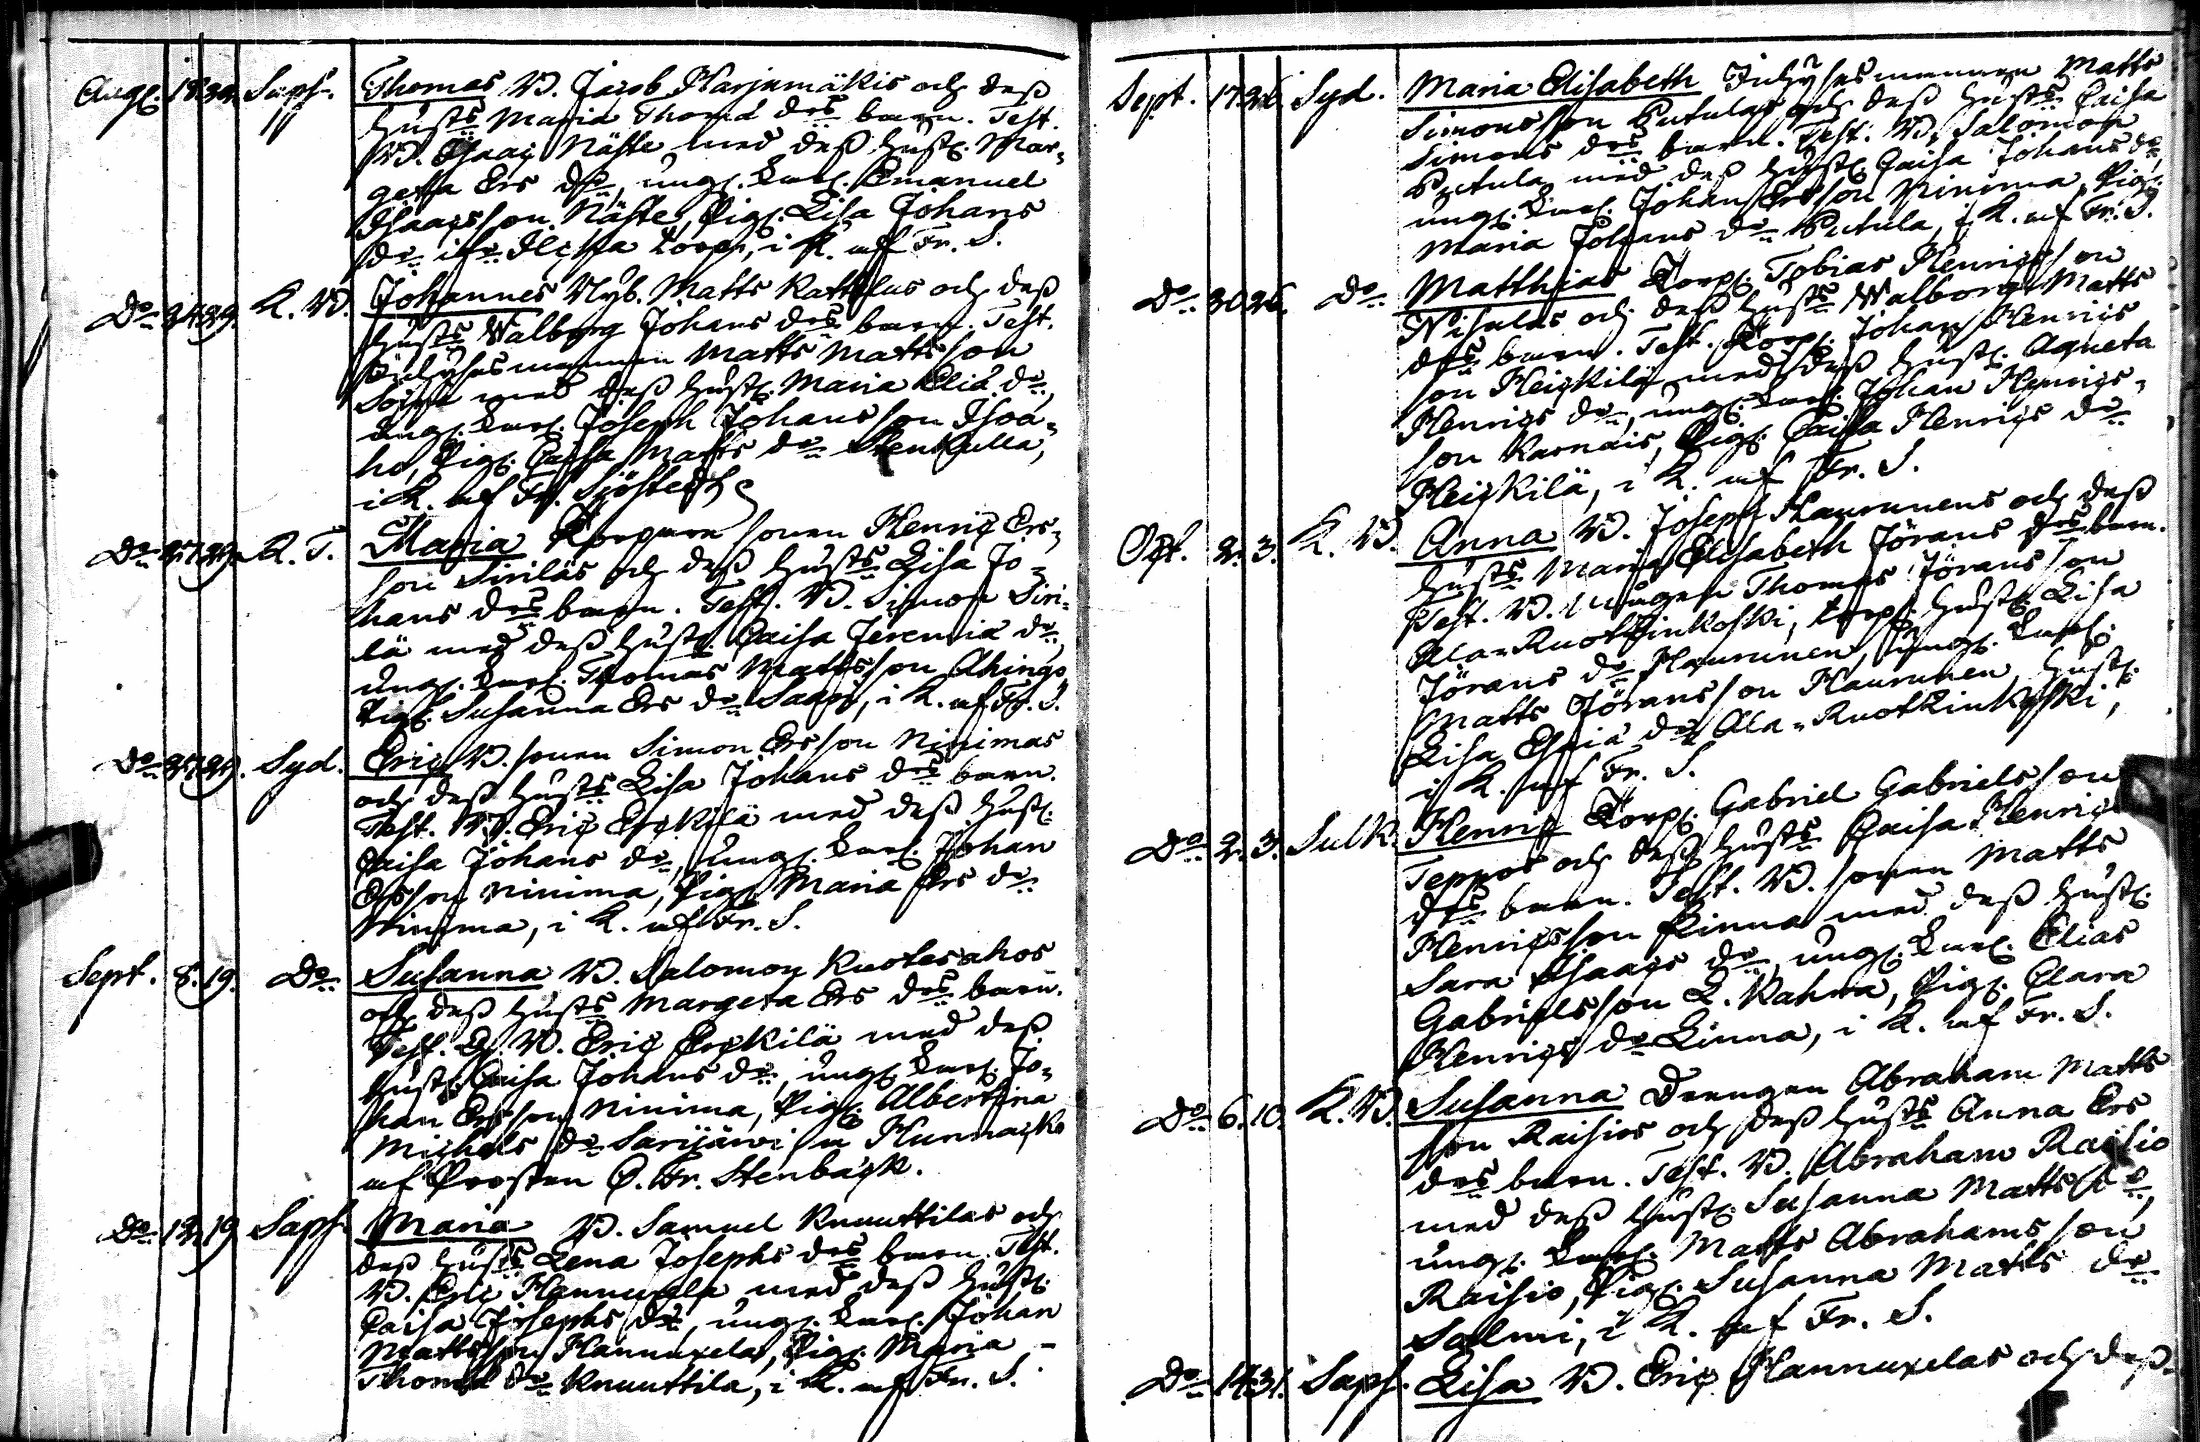 Aug. 18. 24. Saps. Thomas B. Jacob Harjamäkis och deß
hust:s Maria Thomæ d:rs barn. Test.
B. Isaac Näste med deß hust. Mar-
geta Ers d:r, ung. Karl. Emanuel
Isaacsson Näste, Pig. Lisa Johans
d:r, i K. af Fr. S.
D:o 24. 29. K. B. Johannes Nyb. Matts Kattelus och deß
hust:s Walborg Johans d:rs barn. Test.
Inhysesmannen Matts Mattsson
med deß hust. Maria Eliæ d:r,
ung. Karl. Joseph Johansson Isoa-
ho, Pig. Caisa Matts d:r Stenkulla,
i K. af Fr. Sjöstedt
D:o 27. 29. K. T. Maria Torparesonen Henric Ers-
son Siriläs och deß hust:s Lisa Jo-
hans d:rs barn. Test. B. Simon Siri-
lä med deß hust. Caisa Jeremiæ d:r,
ung. Karl. Thomas Mattsson Ahingo,
Pig. Susanna Ers d:r Saari, i K. af Fr. S.
D:o 27. 29. Syd. Eric B. sonen Simon Ersson Ninimas
och deß hust:s Lisa Johans d:rs barn.
Test. B. Eric Erckilä med deß hust.
Caisa Johans d:r, ung. Karl. Johan
Ersson Ninima, Pig. Maria Ers d:r
Ninima, i K. af Fr. S.
Sept. 8. 19. D:o Susanna B. Salomon Kuotesahos
och deß hust:s Margeta Ers d:rs barn.
Test. B. Eric Erckilä med deß
hust. Caisa Johans d:r, ung. Karl. Jo-
han Ersson Ninima, Pig. Albertina
Michels d:r Sarijärvi
af Prosten C. Fr. Stenbäck.
D:o 12. 19. Saps. Maria B. Samuel Knuuttilas och
deß hust:s Lena Josephs d:rs barn. Test.
B. Eric Hannuxela med deß hust.
Caisa Josephs d:r, ung. Karl. Johan
Mattsson Hannuxela, Pig. Maria
Thomæ d:r Knuuttila, i K. af Fr. S.
Sept. 17. 26. Syd. Maria Elisabeth Inhysesmannen Matts
Simonsson Putulas och deß hust:s Caisa
Simons d:rs barn. Test. B. Salomon
Putula med deß hust. Caisa Johans d:r,
ung. Karl. Johan Ersson Ninima, Pig.
Maria Johans d:r Putula, i K. af Fr. S.
D:o 20. 26. D:o Matthias Torp. Tobias Henricsson
och deß hust:s Walborg Matts
d:rs barn. Test. Torp. Johan Henrics
son Heickilä med deß hust. Agneta
Henrics d:r, ung. Karl. Johan Henrics-
son Karnais, Pig. Caisa Henrics d:r
Heickilä, i K. af Fr. S.
Oct. 2. 3. K. B. Anna B. Joseph Haurunens och deß
hust:s Maria Elisabeth Jörans d:rs barn.
Test. B. Thomas Göransson
Ala-Ruotzinkoski, torp. hust. Lisa
Jörans d:r Haurunen, ung. Karl.
Matts Jöransson Haurunen, hust.
Lisa d:r Ala-Ruotzinkoski,
i K. af Fr. S.
D:o 2. 3. Sulk. Henric Torp. Gabriel Gabrielsson
Teppos och deß hust:s Caisa Henrics
d:rs barn. Test. B. sonen Matts
Henricsson Linna med deß hust.
Sara Isaacs d:r, ung. Karl. Elias
Gabrielsson L. Kahra, Pig. Clara
Henrics d:r Linna, i K. af Fr. S.
D:o 6. 10. K. B. Susanna Drengen Abraham Matts
son Raisios och deß hust:s Anna Ers
d:rs barn. Test. B. Abraham Raisio
med deß hust. Susanna Matts d:r,
ung. Karl. Matts Abrahamsson
Raisio, Pig. Susanna Matts d:r
Salmi, i K. af Fr. S.
D:o 14. 31. Saps. Lisa B. Eric Hannuxelas och deß